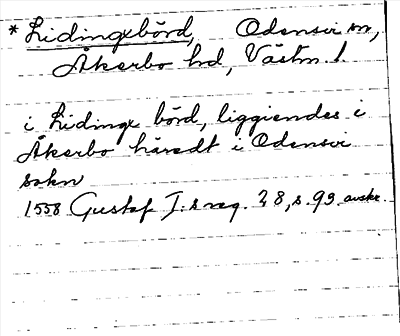 * Lidingebörd, Odensvi sn,
Åkerbo hd, Västm. l.
i Lidinge börd, liggiendes i
Åkerbo häredt i Odensvi
sokn
1558 Gustaf I:s reg. 28, s. 93 avskr.